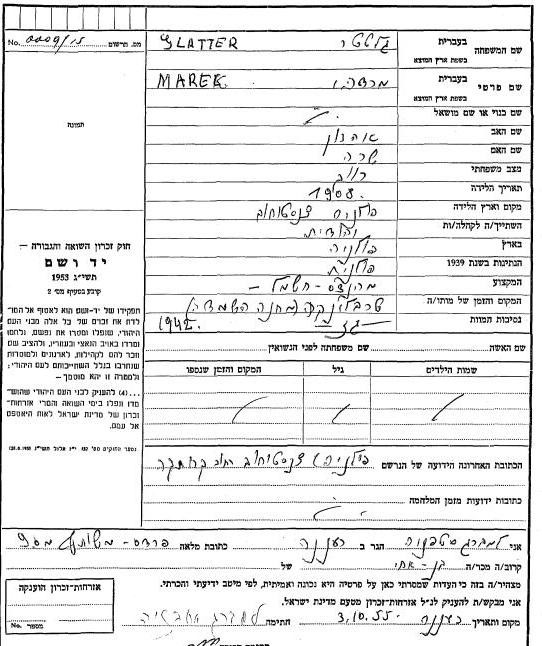 No. 0009/15 מס. תרשום
תמונה
חוק זכרון השואה והגבורה —
יד ושם
תשי"ג 1953
קובע בסעיף מס' 2
תפקידו של יד-ושם הוא לאסוף אל המו-
לדת את זכרם של כל אלה מבני העם
היהודי, שנפלו ומסרו את נפשם, נלחמו
ומרדו באויב הנאצי ובעוזריו, ולהציב שם
וזכר להם לקהילות, לארגונים ולמוסדות
שנחרבו בגלל השתייכותם לעם היהודי;
ולמטרה זו יהא מוסמך —
...(4) להעניק לבני העם היהודי שהוש-
מדו ונפלו בימי השואה והמרי אזרחות-
זכרון של מדינת ישראל לאות היאספם
אל עמם.
שם המשפחה בעברית
בשפת ארץ המוצא
SLATTER
שם פרטי בעברית
בשפת ארץ המוצא
MAREK
שם כנוי או שם מושאל
שם האב אהרון
שם האם שרה
מצב משפחתי
תאריך הלידה 1908
מקום וארץ הלידה פולניה צנסטוחוב
השתייך/ה לקהלה/ות יהודית
בארץ פולניה
הנתינות בשנת 1939 פולנית
המקצוע מהנדס - חשמל
המקום והזמן של מותו/ה טרבלינקה מחנה השמדה
נסיבות המוות גז 1942
שם האשה שם משפחתה לפני הנשואין
שמות הילדים גיל המקום והזמן שנספו
הכתובת האחרונה הידועה של הנרשם פולניה, צנסטוחוב
כתובות ידועות מזמן המלחמה
אני הגר ב רעננה כתובת מלאה פרדס - משותף
קרוב/ה מכר/ה בן - אחי של
מצהיר/ה בזה כי העדות שמסרתי כאן על פרטיה היא נכונה ואמיתית, לפי מיטב ידיעתי והכרתי.
אני מבקש/ת להעניק לנ"ל אזרחות-זכרון מטעם מדינת ישראל.
מקום ותאריך רעננה 3.10.55 חתימה
אזרחות-זכרון הוענקה
מספר No.